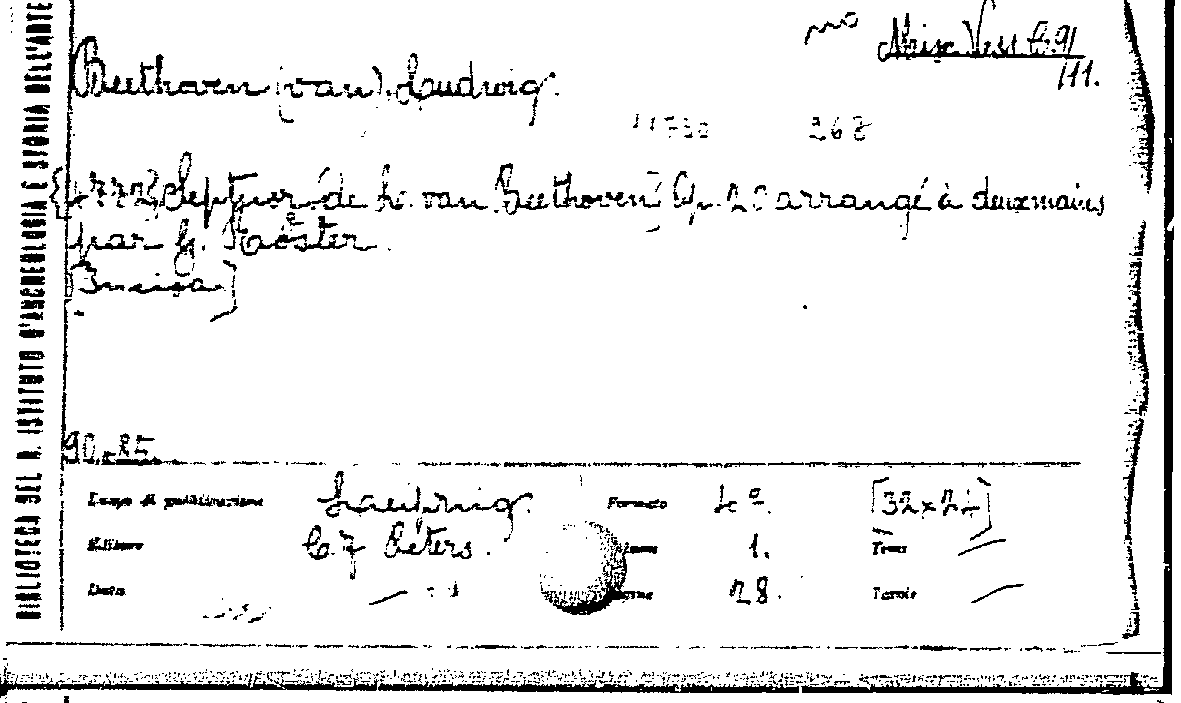 BIBLIOTECA DEL R. ISTITUTO D'ARCHEOLOGIA E STORIA DELL'ARTE
Misc. Vess. B. 91
111.
Beethoven (van), Ludwig.
268
Septuor de L. van Beethoven Op. 20 arrangé à deux mains
par H.
[Musica]
90.-85.
Luogo di pubblicazione Leipzig. Formato 4º. [32×24]
Editore C. F. Peters. 1. Tomi —
Data — 28. Tavole —